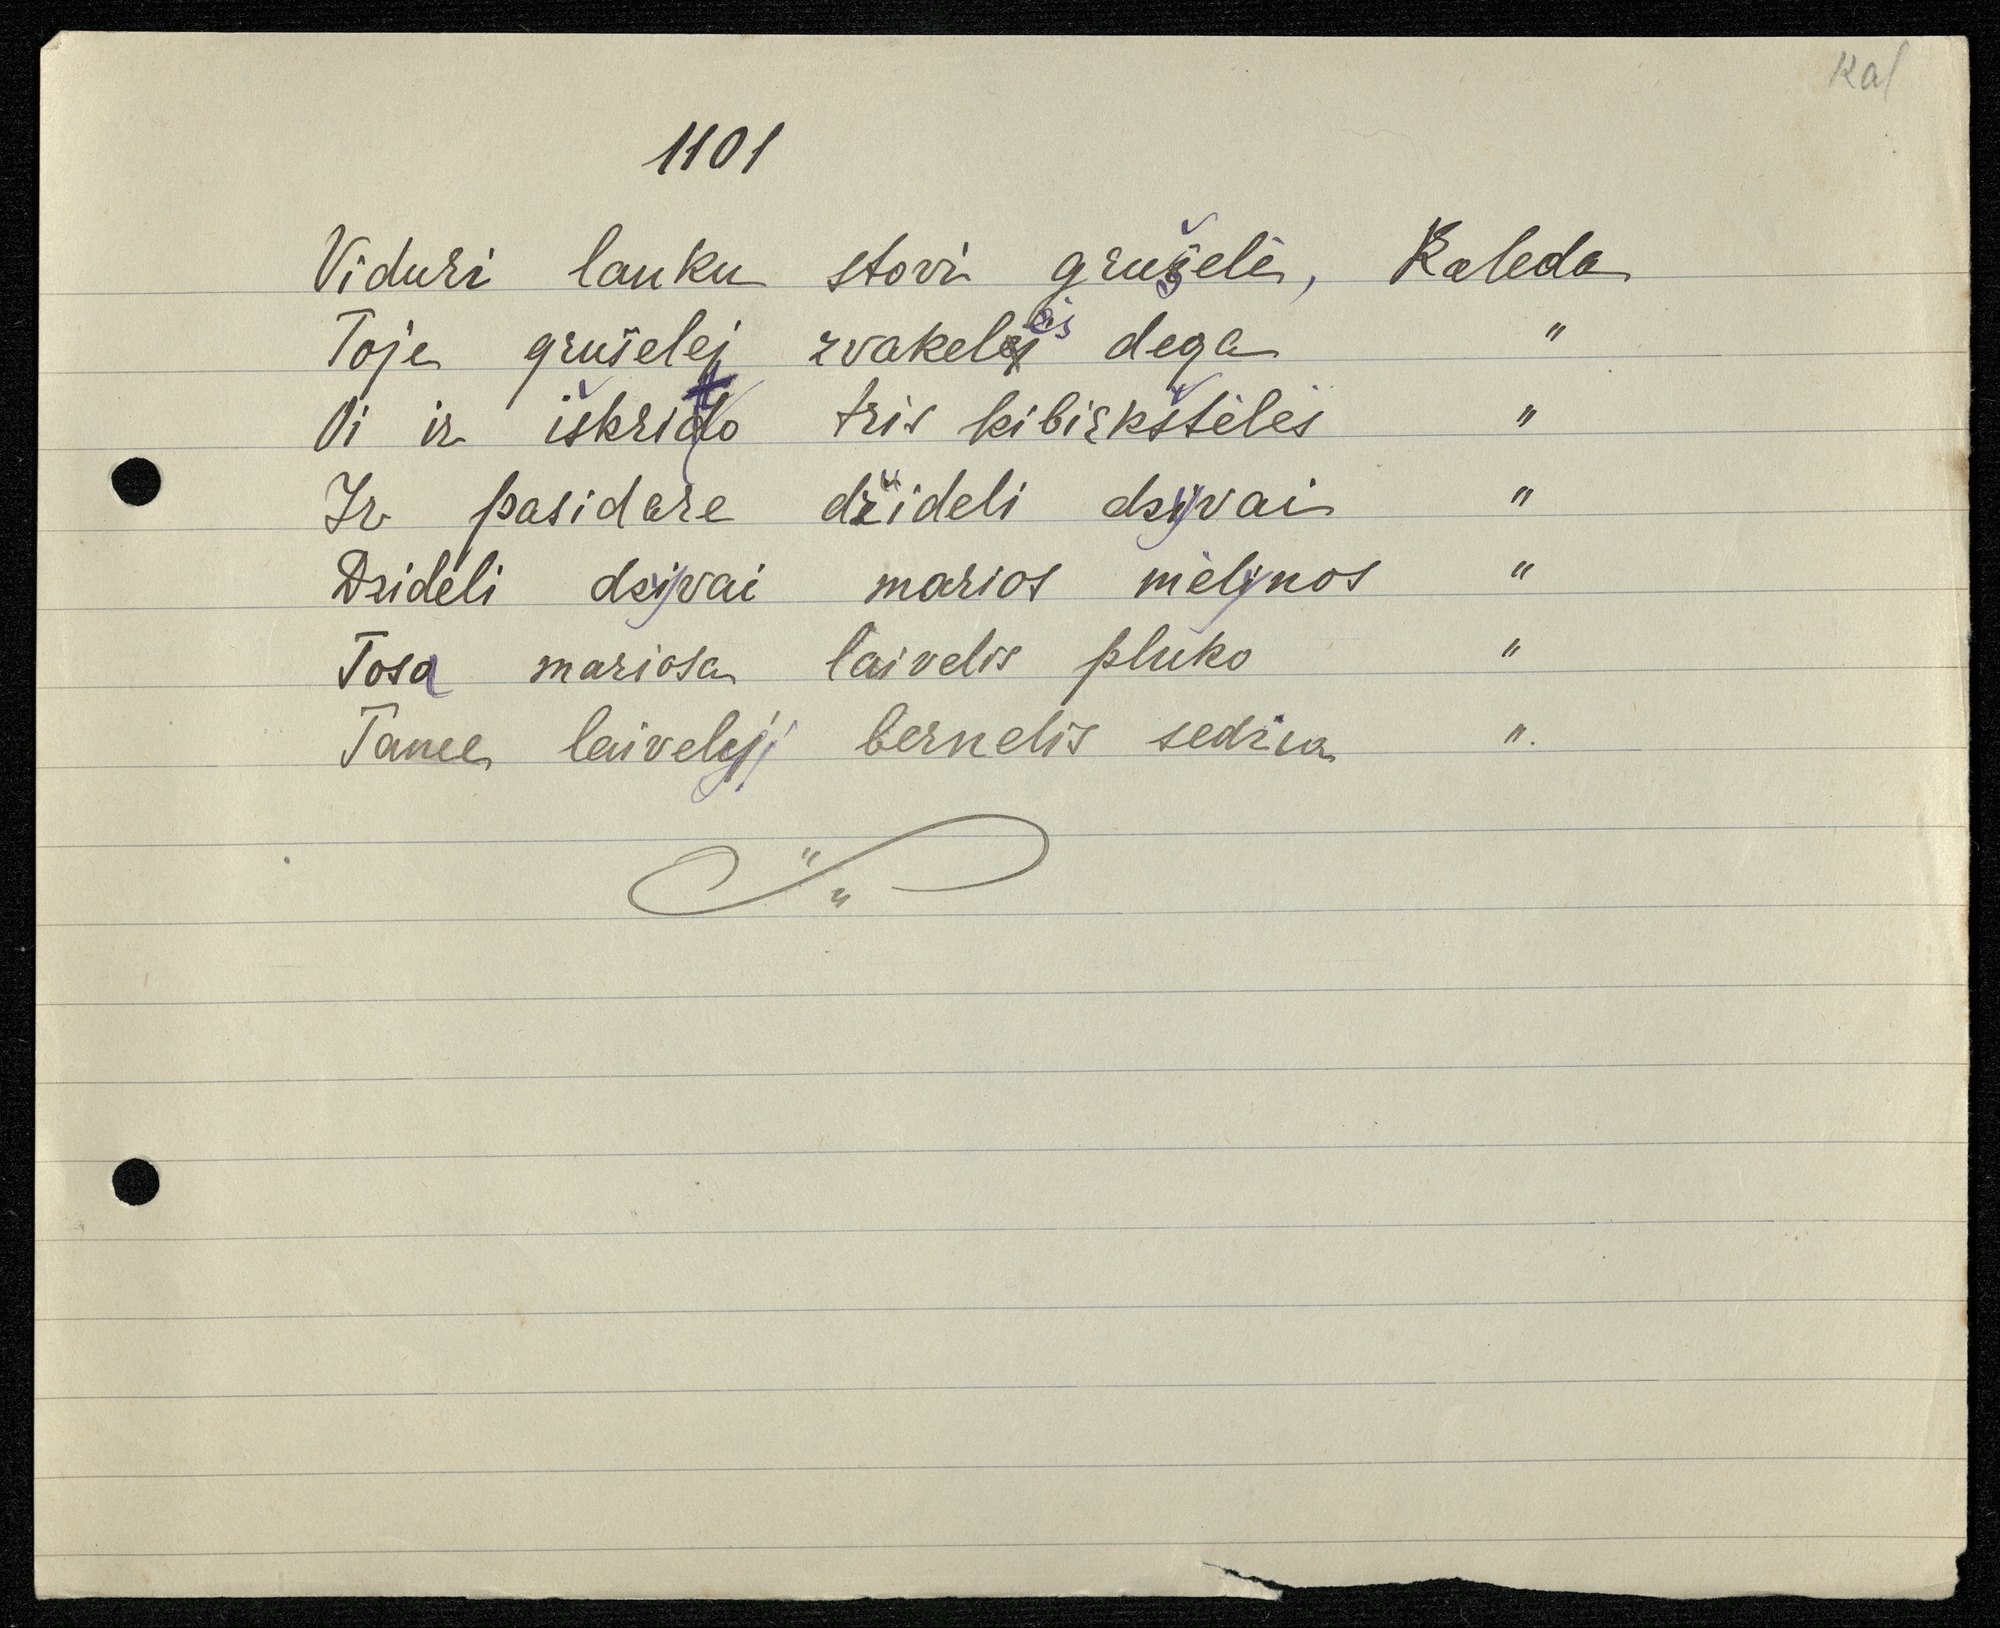 Kal
1101
Viduri lauku stovi grušelė, Kaleda
Toje grušelej zvakelės dega "
Oi ir iškrito tris kibirkštėlės "
Ir pasidare džideli dzyvai "
Dzideli dzyvai marios mėlynos "
Tosa mariosa laivelis pluko "
Tame laivelyj bernelis sedzia ".